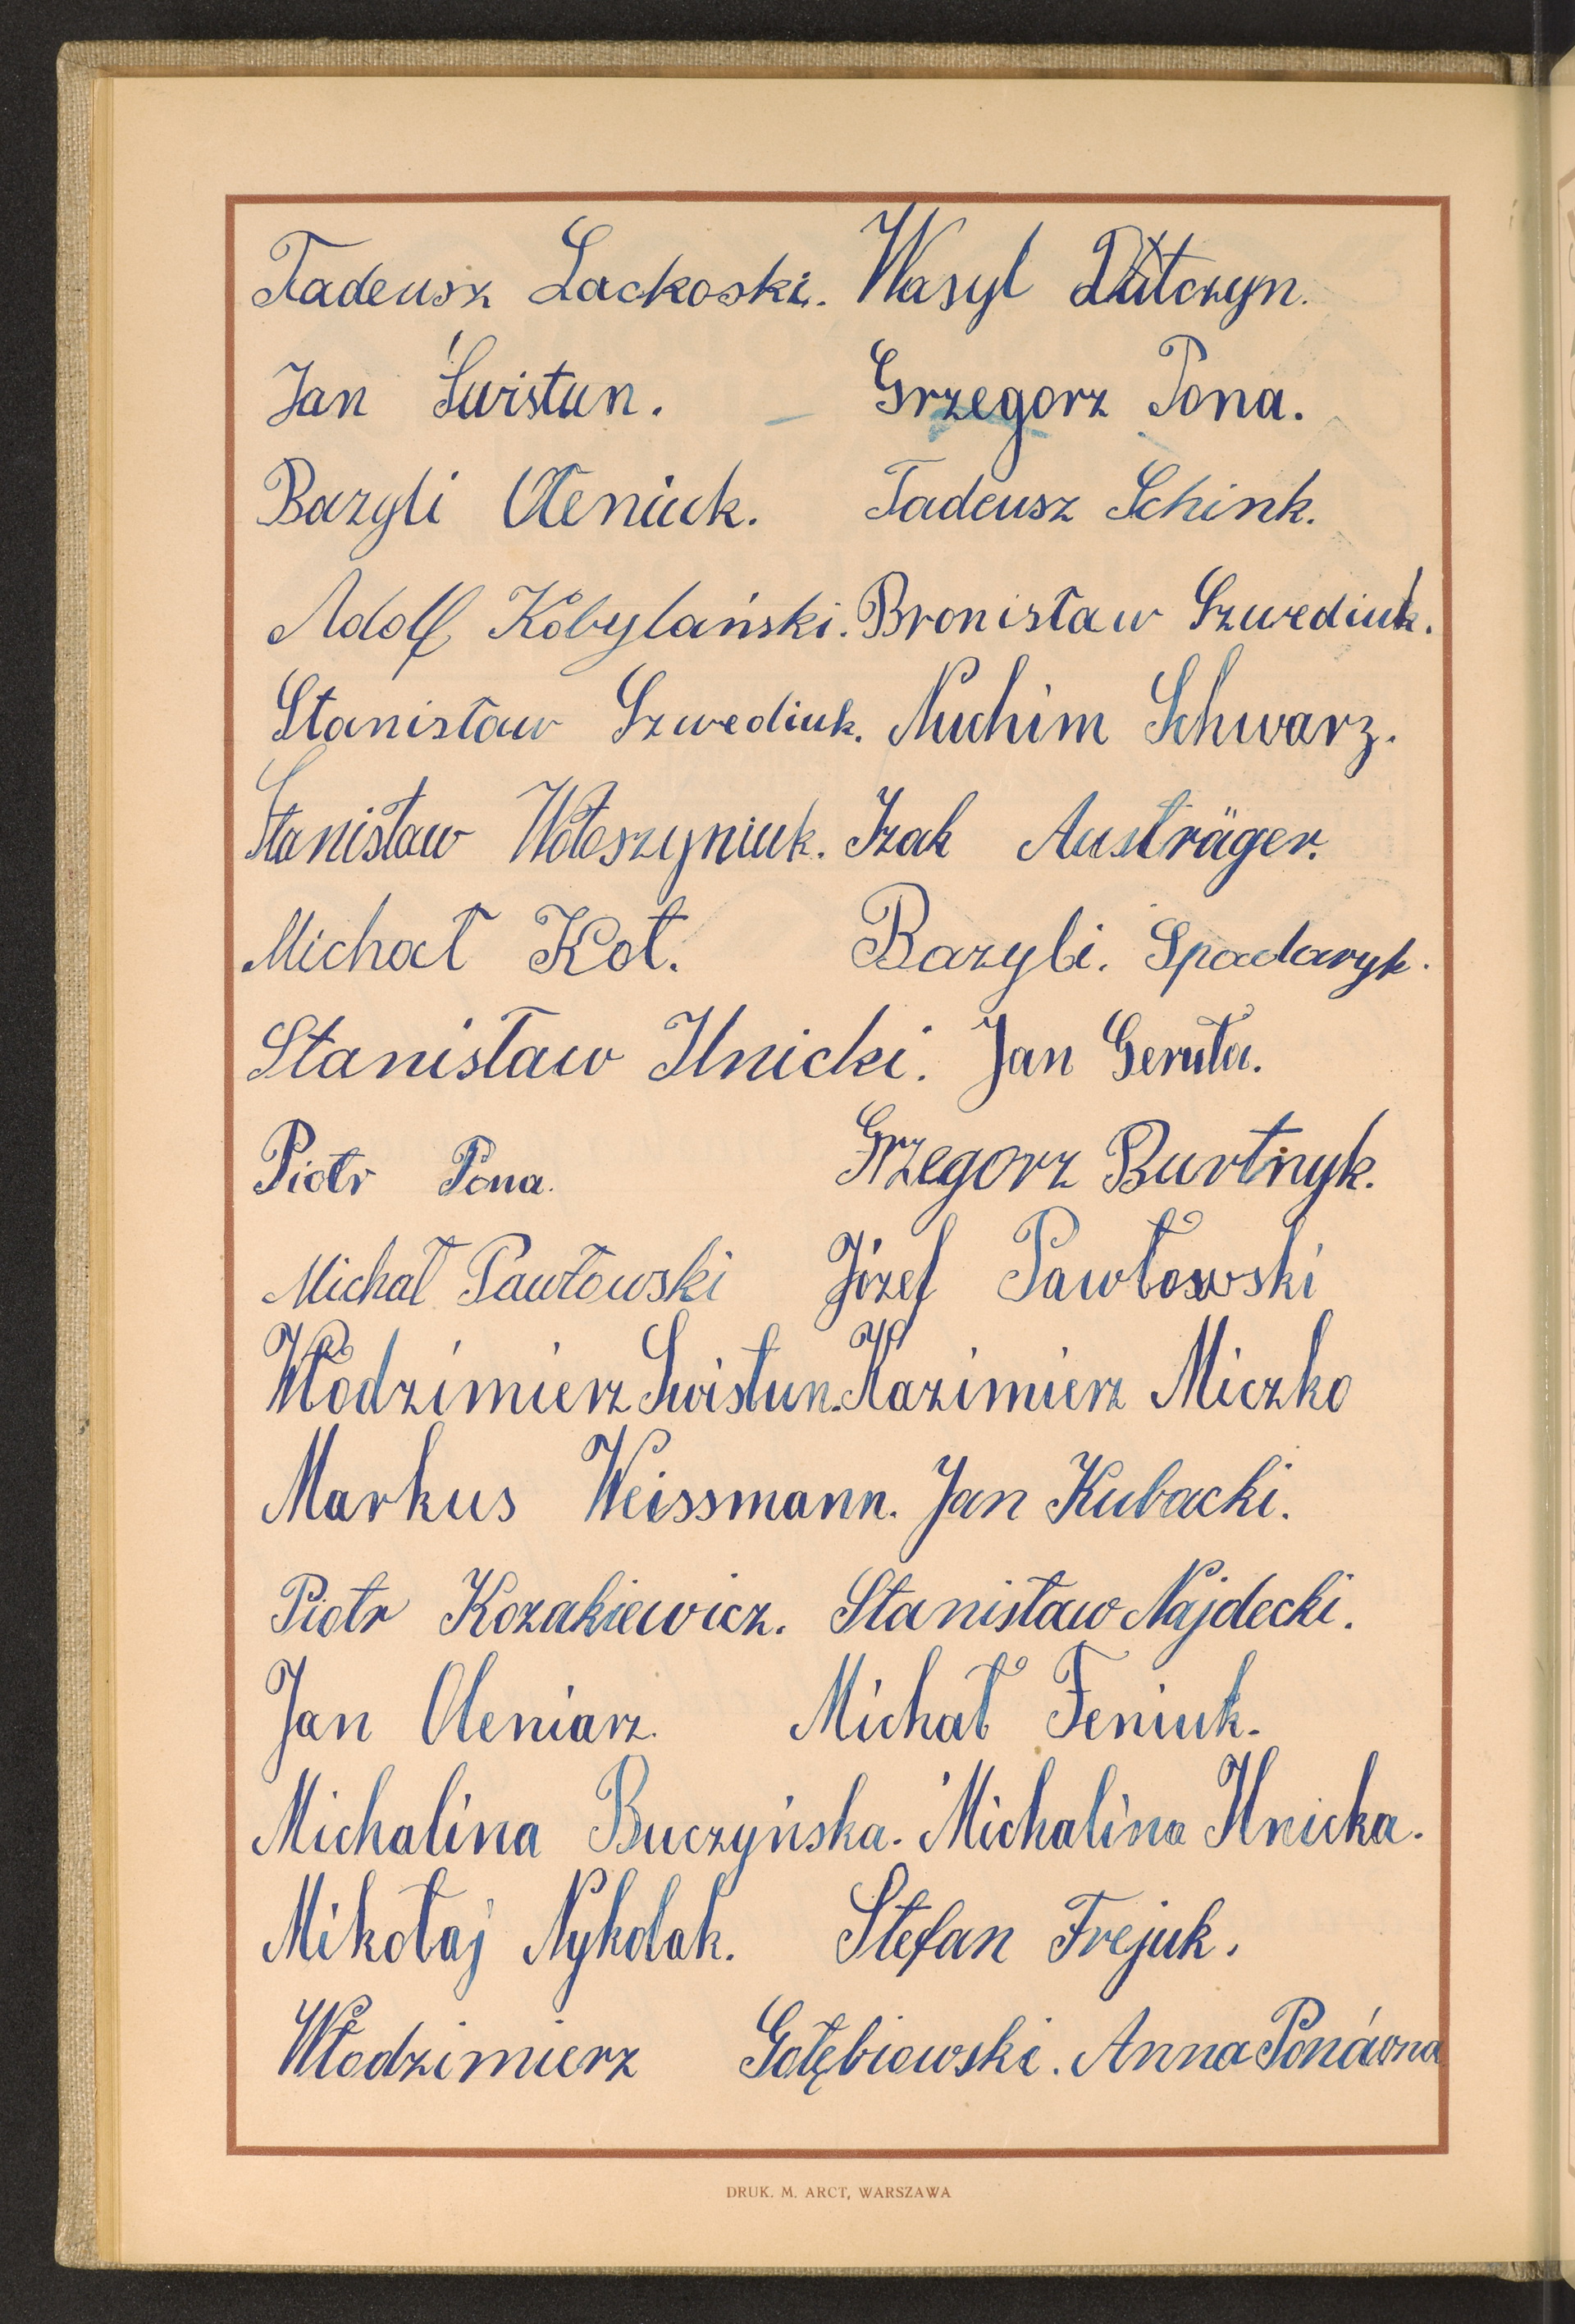 Tadeusz Lackoski. Wasyl Dutczyn.
Jan Świstun. Grzegorz Pona.
Bazyli Oleniuk. Tadeusz Schink.
Adolf Kobylański. Bronisław Szwediuk.
Stanisław Szwediuk. Nuchim Schwarz.
Stanisław Wołoszyniuk. Izak Austräger.
Michał Kot. Bazyli. Spodaryk.
Stanisław Ilnicki. Jan Geruła.
Piotr Pona. Grzegorz Burtnyk.
Michał Pawłowski Józef Pawłowski
Włodzimierz Swistun. Kazimierz Miczko
Markus Weissmann. Jan Kubacki.
Piotr Kozakiewicz. Stanisław Najdecki.
Jan Oleniarz. Michał Feniuk.
Michalina Buczyńska. Michalina Ilnicka.
Mikołaj Nykolak. Stefan Frejuk.
Włodzimierz Gołębiowski. Anna Ponówna
DRUK. M. ARCT, WARSZAWA